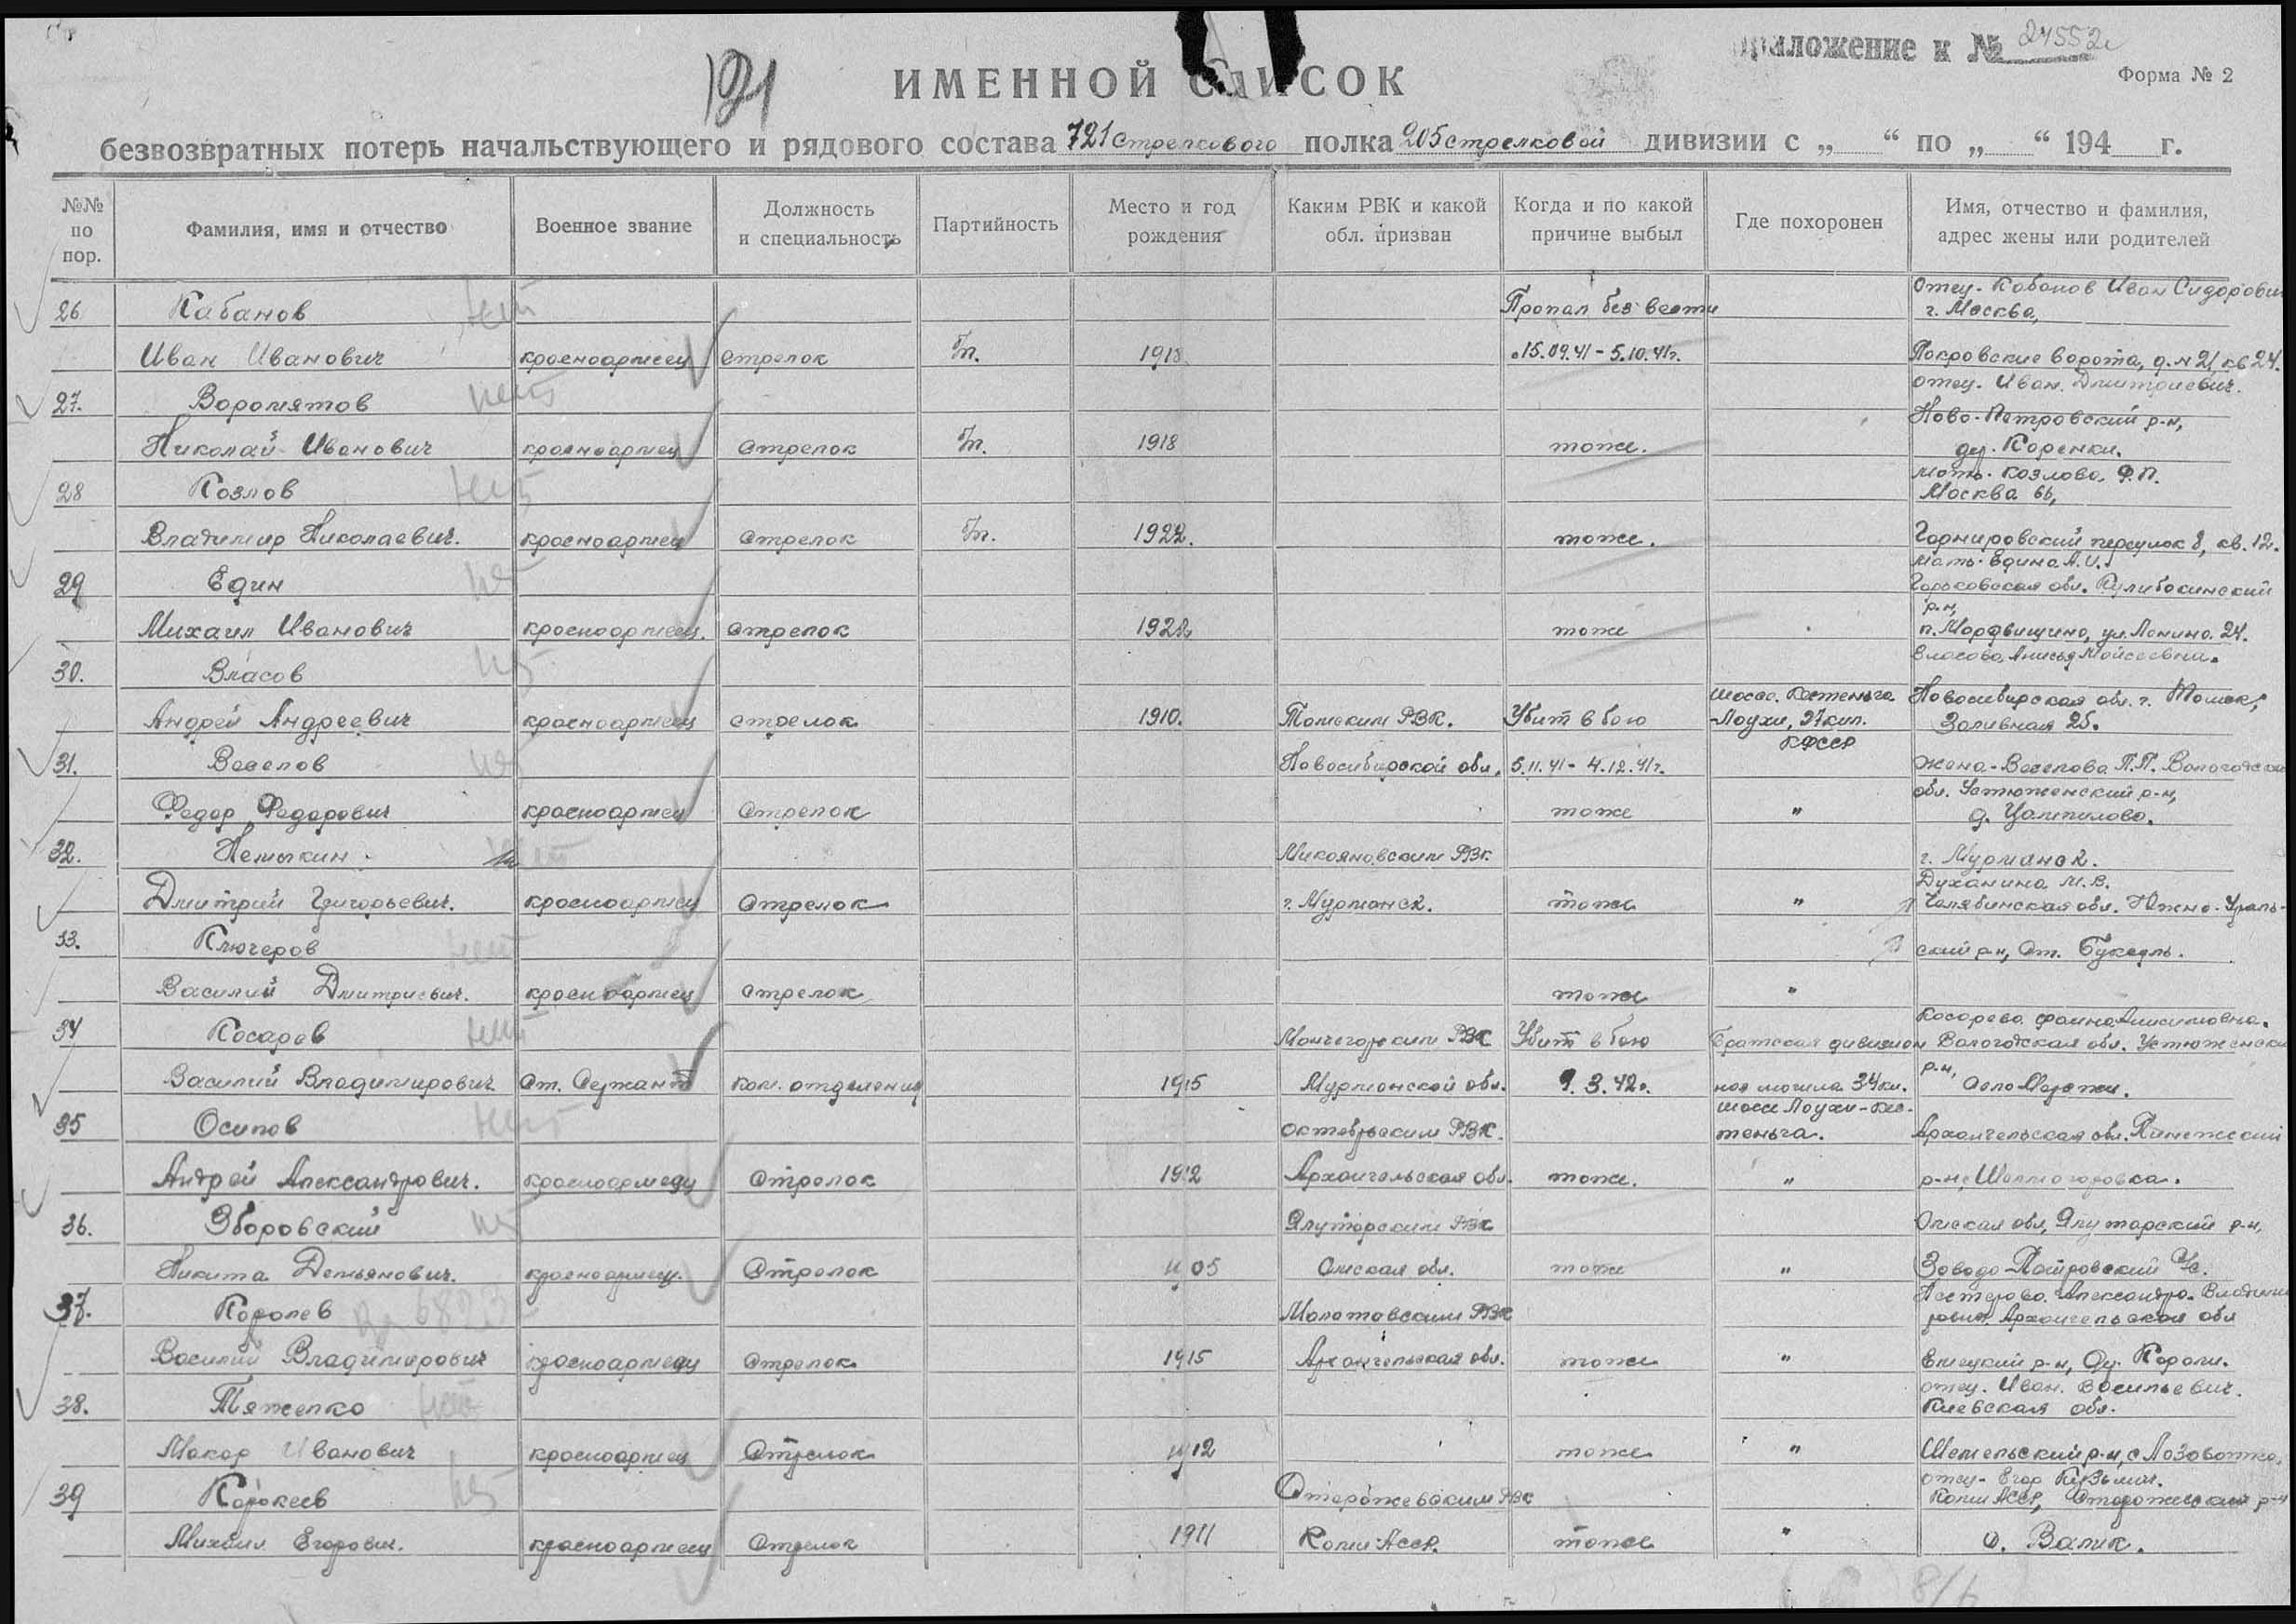 Приложение к № 24552с
Форма № 2
121
ИМЕННОЙ СПИСОК
безвозвратных потерь начальствующего и рядового состава 721 стрелкового полка 205 стрелковой дивизии с „ “ по „ “ 194 г.
№№ по пор. Фамилия, имя и отчество Военное звание Должность и специальность Партийность Место и год рождения Каким РВК и какой обл. призван Когда и по какой причине выбыл Где похоронен Имя, отчество и фамилия, адрес жены или родителей
Отец - Кабанов Иван Сидорович
26 Кабанов нет Пропал без вести г. Москва,
Иван Иванович красноармеец стрелок б/п. 1918. с 15.09.41 - 5.10.41г. Покровские ворота, д. № 21, кв 24.
отец. Иван Дмитриевич.
27. Воромятов нет
Ново-Петровский р-н,
Николай Иванович красноармеец стрелок б/п. 1918 тоже. дер. Коренки.
мать. Козлова. Ф.П.
28 Козлов нет Москва 66,
Владимир Николаевич. красноармеец стрелок б/п. 1922. тоже. переулок 8, кв. 12.
Мать - Едина А.И.
29 Един нет Горьковская обл. Кулибакинский
р-н,
Михаил Иванович красноармеец. стрелок 1922 тоже п. Мордвищино, ул. Ленина. 24.
Власова, Анисья Моисеевна.
30. Власов нет
Андрей Андреевич красноармеец стрелок 1910. Томским РВК. Убит в бою шоссе. Кестеньга - Лоухи, 27 кил. КФССР Новосибирская обл. г. Томск, Заливная 25.
31. Веселов нет Новосибирской обл. 5.11.41 - 4.12.41г. жена - Веселова П.П. Вологодская
обл. Устюженский р-н,
Федор Федорович красноармеец стрелок тоже " д.
32. Немыкин нет Микояновским РВК г. Мурманск.
Духанина М.В.
Дмитрий Григорьевич. красноармеец стрелок г. Мурманск. тоже " Челябинская обл. Южно-Ураль-
33. Ключеров нет ский р-н, ст.
Василий Дмитриевич. красноармеец стрелок тоже "
Косарева
34 Косарев нет Мончегорским РВК Убит в бою Братская дивизион Вологодская обл. Устюженский
р-н,
Василий Владимирович Ст. Сержант ком. отделения 1915 Мурманской обл. 9.3.42г. ная могила 34 км. село
шоссе Лоухи - Кес-
35 Осипов нет Октябрьским РВК. теньга. Архангельская обл. Пинежский
Андрей Александрович. красноармеец стрелок 1912 Архангельская обл. тоже. " р-н,
36. Зборовский нет Ялуторским РВК Омская обл, Ялуторский р-н,
Никита Демьянович. красноармеец. стрелок 1905 Омская обл. тоже "
Александра Владими
37. Королев 6823 Молотовским РВК ровна. Архангельская обл
Василий Владимирович красноармеец стрелок 1915 Архангельская обл. тоже " Емецкий р-н, Короли.
отец. Иван Васильевич.
38. Тяжелко нет Киевская обл.
Макар Иванович красноармеец стрелок 1912 тоже " р-н, с Лозоватка.
отец - Егор Кузьмич.
39 Корокеев нет Сторожевским РВК Коми АССР, Сторожевский р-н
Михаил Егорович. красноармеец стрелок 1911 Коми АССР. тоже "